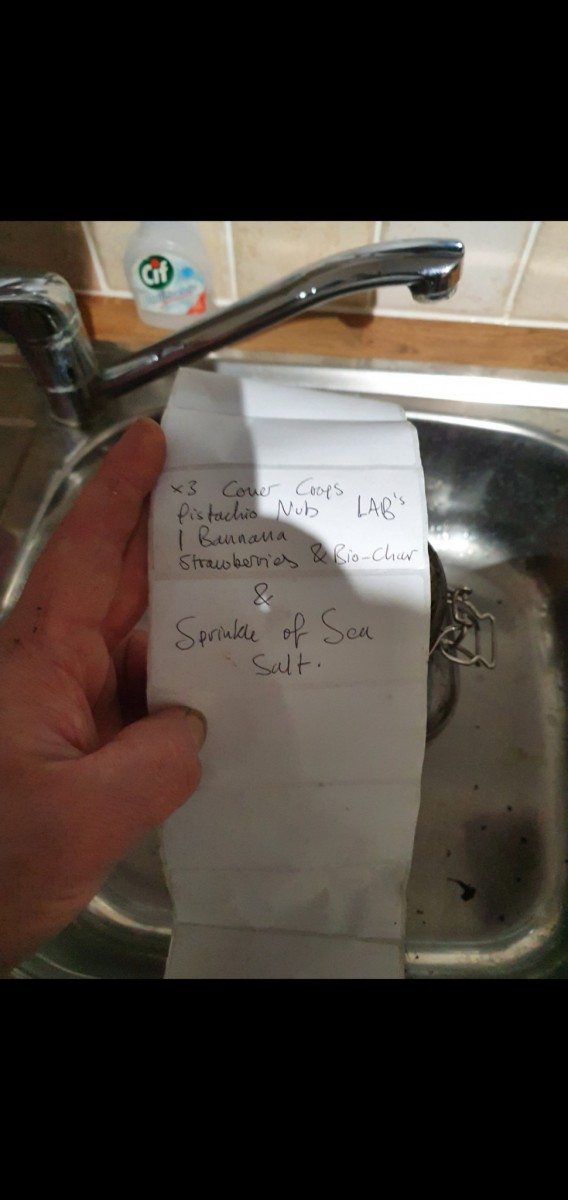 Cif
x3 Cover Crops
Pistachio Nuts LAB's
1 Bannana
Strawberries & Bio-Char
&
Sprinkle of Sea
Salt.